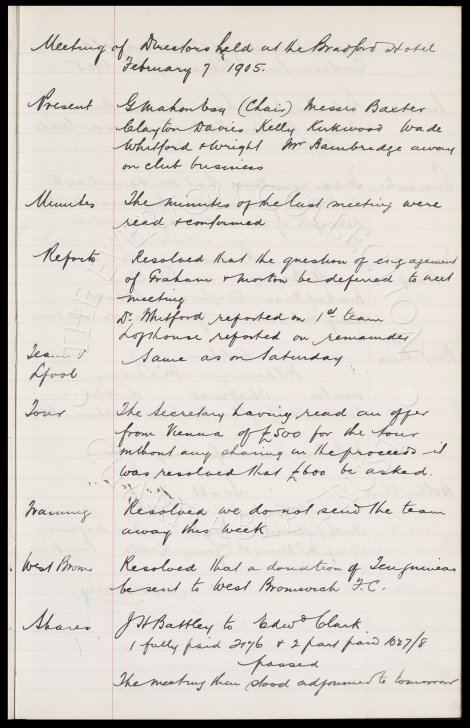 Meeting of Directors held at the Bradford Hotel
February 7 1905.
Present G Mahon Esq (Chair) Messrs Baxter
Clayton Davies Kelly Kirkwood Wade
Whitford & Wright Mr Bainbridge away
on club business
Minutes The minutes of the last meeting were
read & confirmed
Reports Resolved that the question of engagement
of Graham & Morton be deferred to next
meeting
Dr Whitford reported on 1st team
Lofthouse reported on remainder
Team v Same as on Saturday
Lpool
Tour The Secretary having read an offer
from Vienna of £500 for the tour
without any sharing in the proceeds it
was resolved that £600 be asked.
Training Resolved we do not send the team
away this week
West Brom Resolved that a donation of Ten guineas
be sent to West Bromwich F.C.
Shares J H Battley to Edwd Clark
1 fully paid & 2 part paid
passed
The meeting then stood adjourned to tomorrow